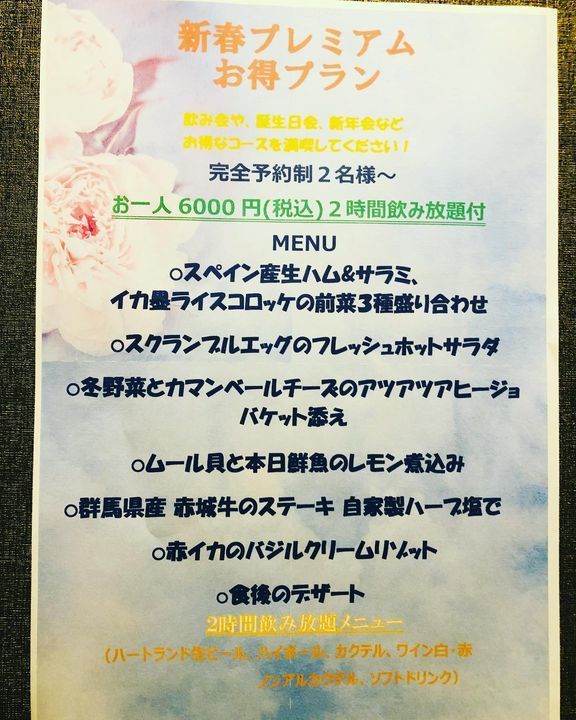 新春プレミアム
お得プラン
飲み会や、誕生日会、新年会など
お得なコースを満喫してください！
完全予約制２名様～
お一人 6000 円(税込)２時間飲み放題付
MENU
○スペイン産生ハム&サラミ、
イカ墨ライスコロッケの前菜３種盛り合わせ
○スクランブルエッグのフレッシュホットサラダ
○冬野菜とカマンベールチーズのアツアツアヒージョ
バケット添え
○ムール貝と本日鮮魚のレモン煮込み
○群馬県産 赤城牛のステーキ 自家製ハーブ塩で
○赤イカのバジルクリームリゾット
○食後のデザート
2時間飲み放題メニュー
（ハートランド生ビール、ハイボール、カクテル、ワイン白・赤
ノンアルカクテル、ソフトドリンク）